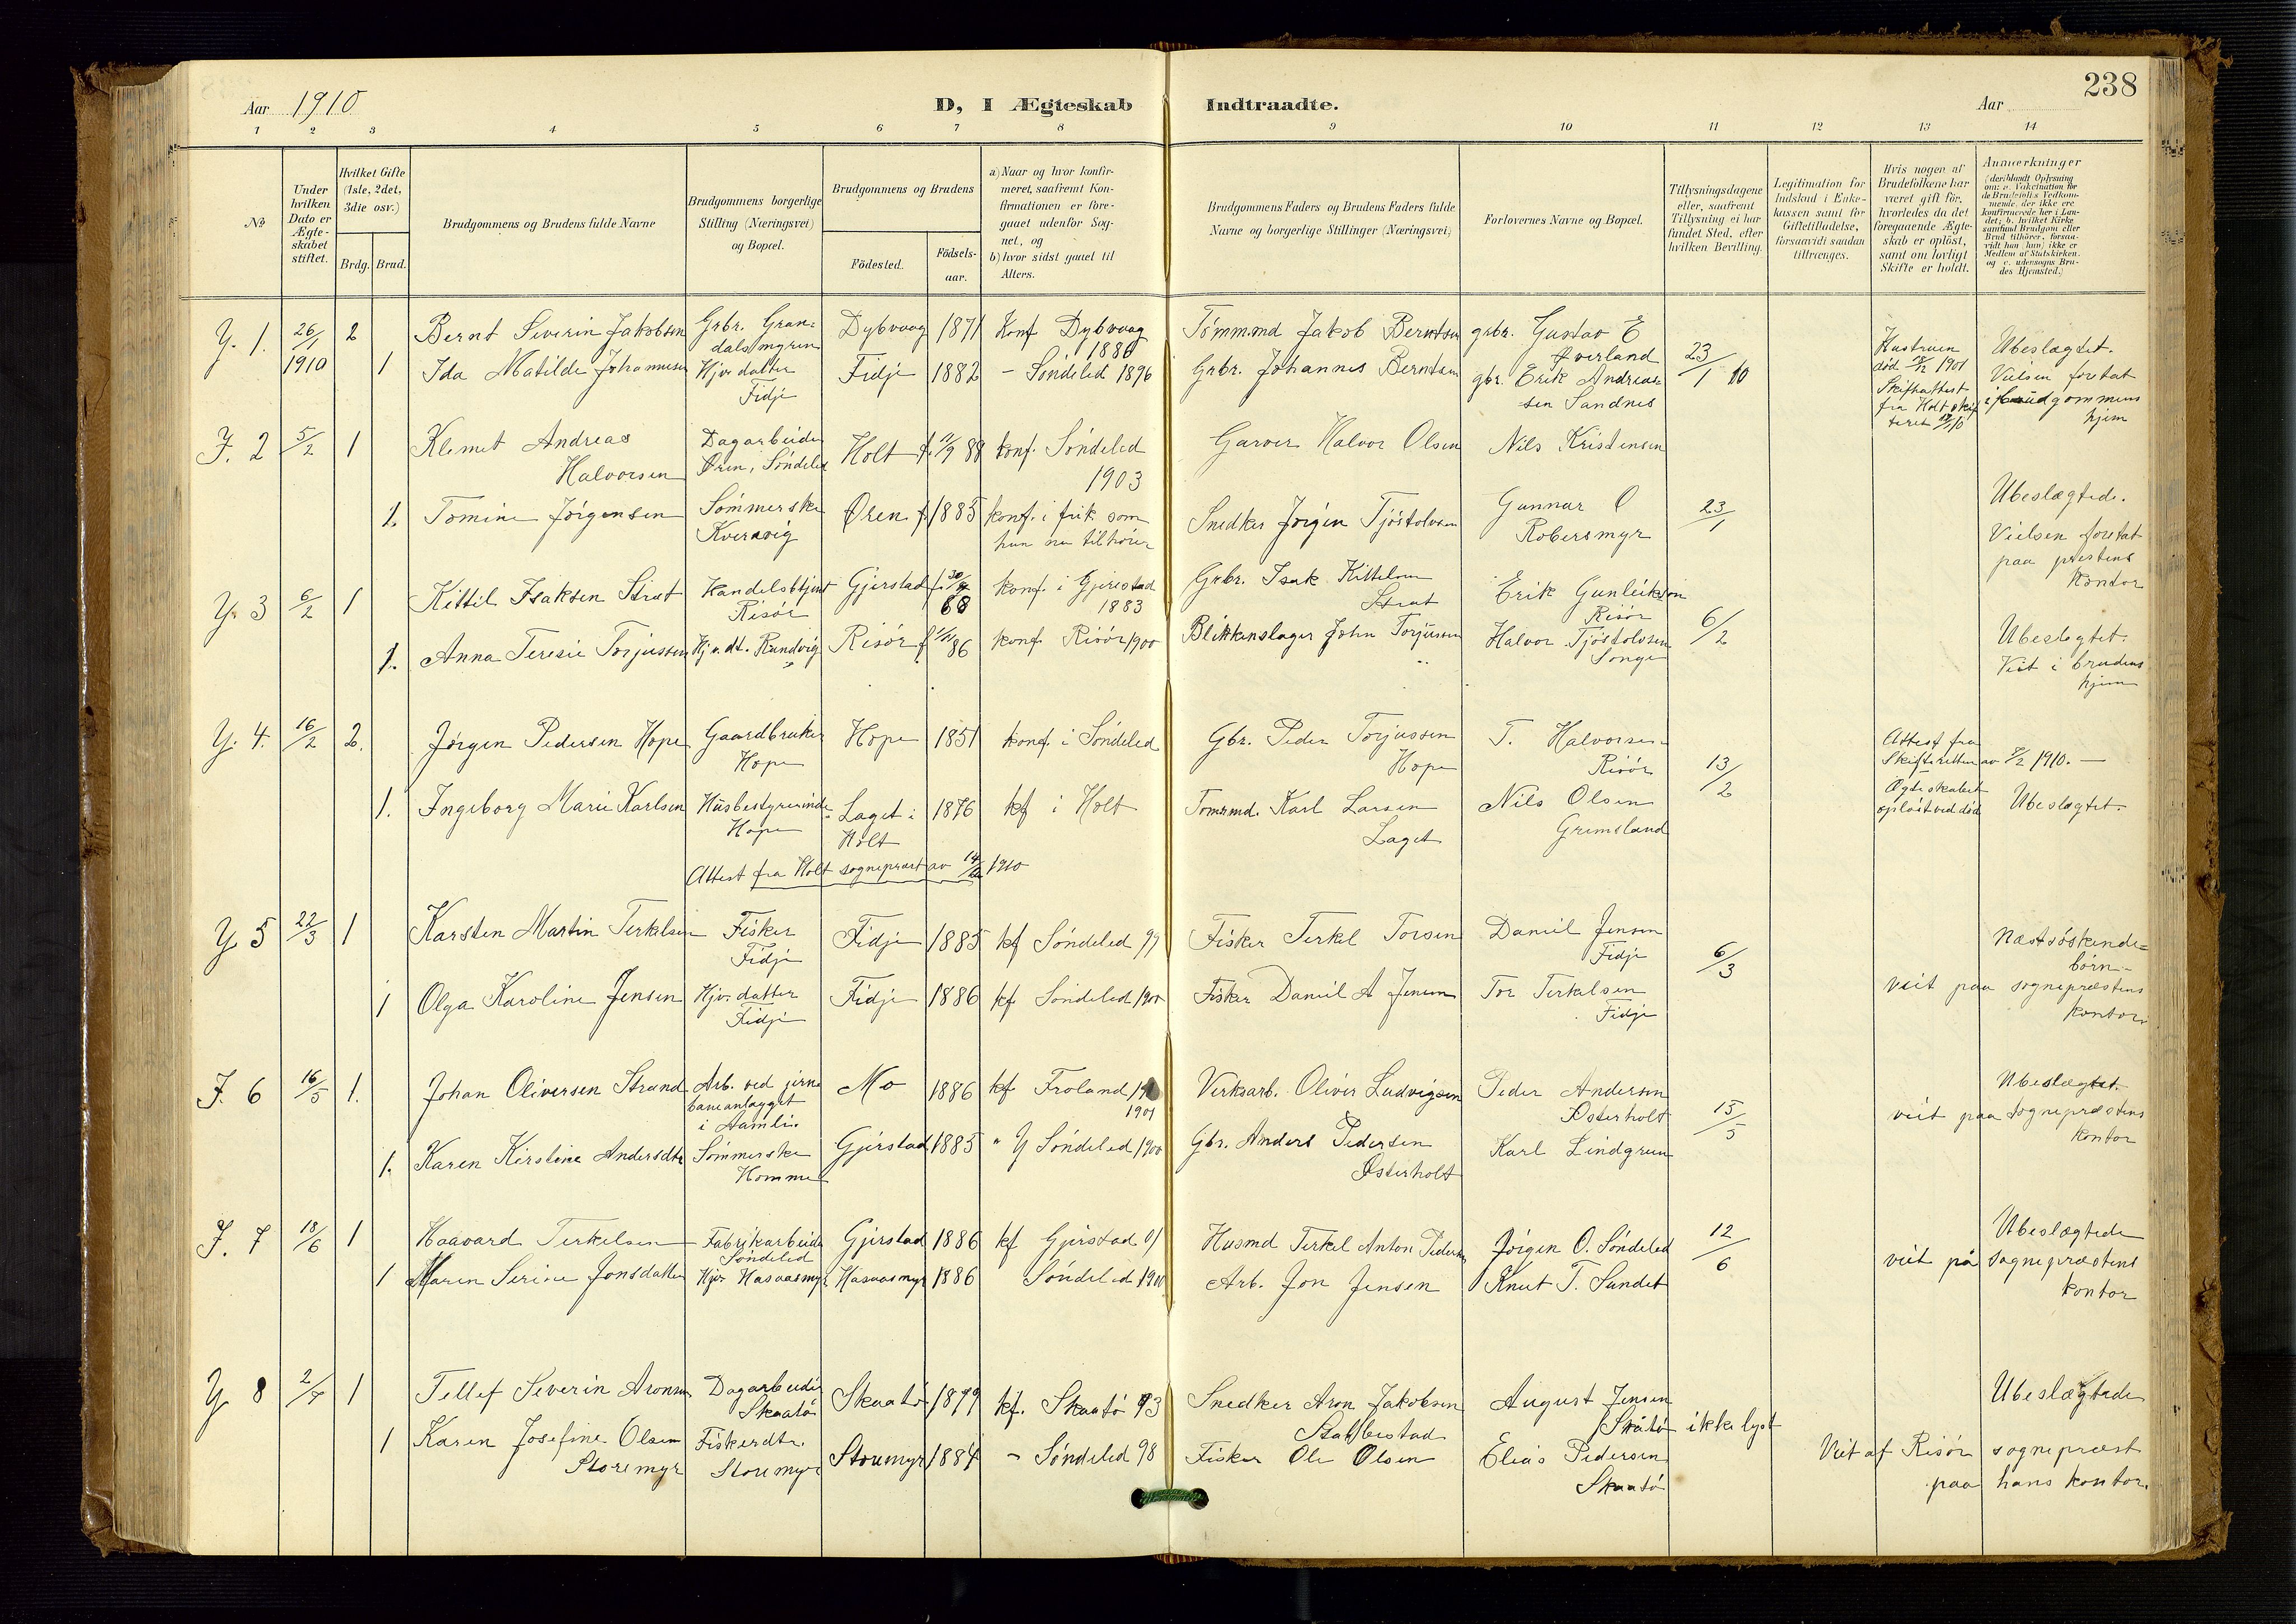 238
Aar 1910
D, I Ægteskab Indtraadte.
Aar
1 2 3 4 5 6 7 8 9 10 11 12 13 14
No
Under hvilken Dato er Ægteskabet stiftet.
Hvilket Gifte (1ste, 2det, 3die osv.)
Brdg. Brud.
Brudgommens og Brudens fulde Navne
Brudgommens borgerlige Stilling (Næringsvei) og Bopæl.
Brudgommens og Brudens
Födested.
Födsels-aar.
a) Naar og hvor konfirmeret, saafremt Konfirmationen er foregaaet udenfor Sognet, og
b) hvor sidst gaaet til Alters.
Brudgommens Faders og Brudens Faders fulde Navne og borgerlige Stillinger (Næringsvei)
Forlovernes Navne og Bopæl.
Tillysningsdagene eller, saafremt Tillysning ei har fundet Sted, efter hvilken Bevilling.
Legitimation for Indskud i Enkekassen samt for Giftetilladelse, forsaavidt saadan tiltrænges.
Hvis nogen af Brudefolkene har været gift før, hvorledes da det foregaaende Ægteskab er oplöst, samt om lovligt Skifte er holdt.
Anmerkninger (deriblandt Oplysning om: a. Vakcination for de Brudefolks Vedkommende, der ikke ere konfirmerede her i Landet; b. hvilket Kirkesamfund Brudgom eller Brud tilhörer, forsaavidt han (hun) ikke er Medlem af Statskirken, og c. udensogns Brudes Hjemsted.)
Y. 1. 26/1 1910 2 Bernt Severin Jakobsen Grbr. Grandalsmyren Dybvaag 1871 Konf Dybvaag 1886 Tømm.md Jakob Berntsen grbr. Gustav E Øverland 23/1 10 Hustruen død 1901 Skifteattest fra Holt Ubeslægtet. Vielsen foretat i brudgommens hjem
1 Ida Matilde Johannesen Hjv. datter Fidje Fidje 1882 - Søndeled 1896 Grbr. Johannes Berntsen gbr. Erik Andreassen Sandnes
J. 2 5/2 1 Klemet Andreas Halvorsen Dagarbeider Øren, Søndeled Holt f. 11/9 88 konf. Søndeled 1903 Garver Halvor Olsen Nils Kristensen
1. Tomine Jørgensen Sømmerske Kveravig Øren f 1885 konf. i frik som hun nu tilhører Snedker Jørgen Tjøstolvsen Gunnar O Robersmyr 23/1 Ubeslægtede. Vielsen foretat paa prestens kontor
Y. 3 6/2 1 Kittil Isaksen Strat Handelsbetjent Risør Gjerstad 68 konf. i Gjerestad 1883 Grbr. Isak Kittelsen Strat Erik Gunleikson Risør 6/2
1. Anna Teresie Torjussen Hj. v. dt. Randvig Risør f 1/11 86 konf. Risør 1900 Blikkenslager John Torjussen Halvor Tjøstolvsen Songe Ubeslegtet. Viet i brudens hjem
Y. 4. 16/2 2. Jørgen Pedersen Hope Gaardbruker Hope Hope 1851 konf. i Søndeled Gbr. Peder Torjussen Hope T. Halvorsen Risør 13/2 Attest fra Skifteretten av 8/2 1910. — Ægteskabet opløst ved død
1. Ingeborg Marie Karlsen Husbestyrerinde Hope Laget i Holt 1876 kf i Holt Tømmd. Karl Larsen Laget Nils Olsen Grimsland Ubeslægtet.
Attest fra Holt sogneprest av 14/2 1910
Y 5 22/3 1 Karsten Martin Terkelsen Fisker Fidje Fidje 1885 kf Søndeled 99 Fisker Terkel Torsen Daniel Jensen Fidje 6/3 Næstsøskendebørn-
1 Olga Karoline Jensen Hjv. datter Fidje Fidje 1886 kf Søndeled 1900 Fisker Daniel A Jensen Tor Terkelsen Fidje viet paa sogneprestens kontor
J. 6 16/5 1. Johan Oliversen Strand Arb. ved jernbaneanlægget i Aamli. Mo 1886 kf Froland 1901 Verksarb. Oliver Ludvigsen Peder Andersen Østerholt 15/5 Ubeslægtet. viet paa sogneprestens kontor
1. Karen Kirstine Andersdtr Sømmerske Homme Gjerstad 1885 " Y Søndeled 1900 Gbr. Anders Pedersen Østerholt Karl Lindgren
J. 7 18/6 1 Haavard Terkelsen Fabrikarbeider Søndeled Gjerstad 1886 kf Gjerstad 01 Husmd Terkel Anton Pedersen Jørgen O. Søndeled 12/6 Ubeslægtede
1 Maren Serine Jonsdatter Hjv. Hasaasmyr Hasaasmyr 1886 Søndeled 1900 Arb. Jon Jensen Knut T. Sundet viet på sogneprestens kontor
Y 8 2/7 1 Tellef Severin Aronsen Dagarbeider Skaatø Skaatø 1879 kf. Skaatø 93 Snedker Aron Jakobsen Stabbestad August Jensen Skåtø ikke lyst Ubeslægtede
1 Karen Josefine Olsen Storemyr Fiskerdtr. Storemyr Storemyr 1884 - Søndeled 98 Fisker Ole Olsen Elias Pedersen Skaatø Viet af Risør sogneprest paa hans kontor.